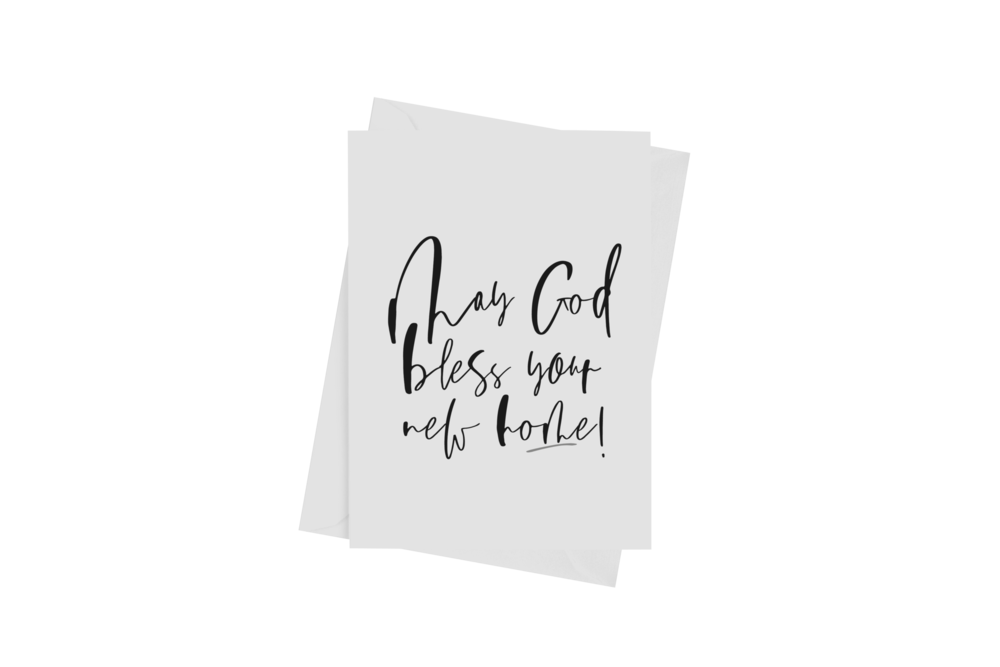 May God
bless your
new home!